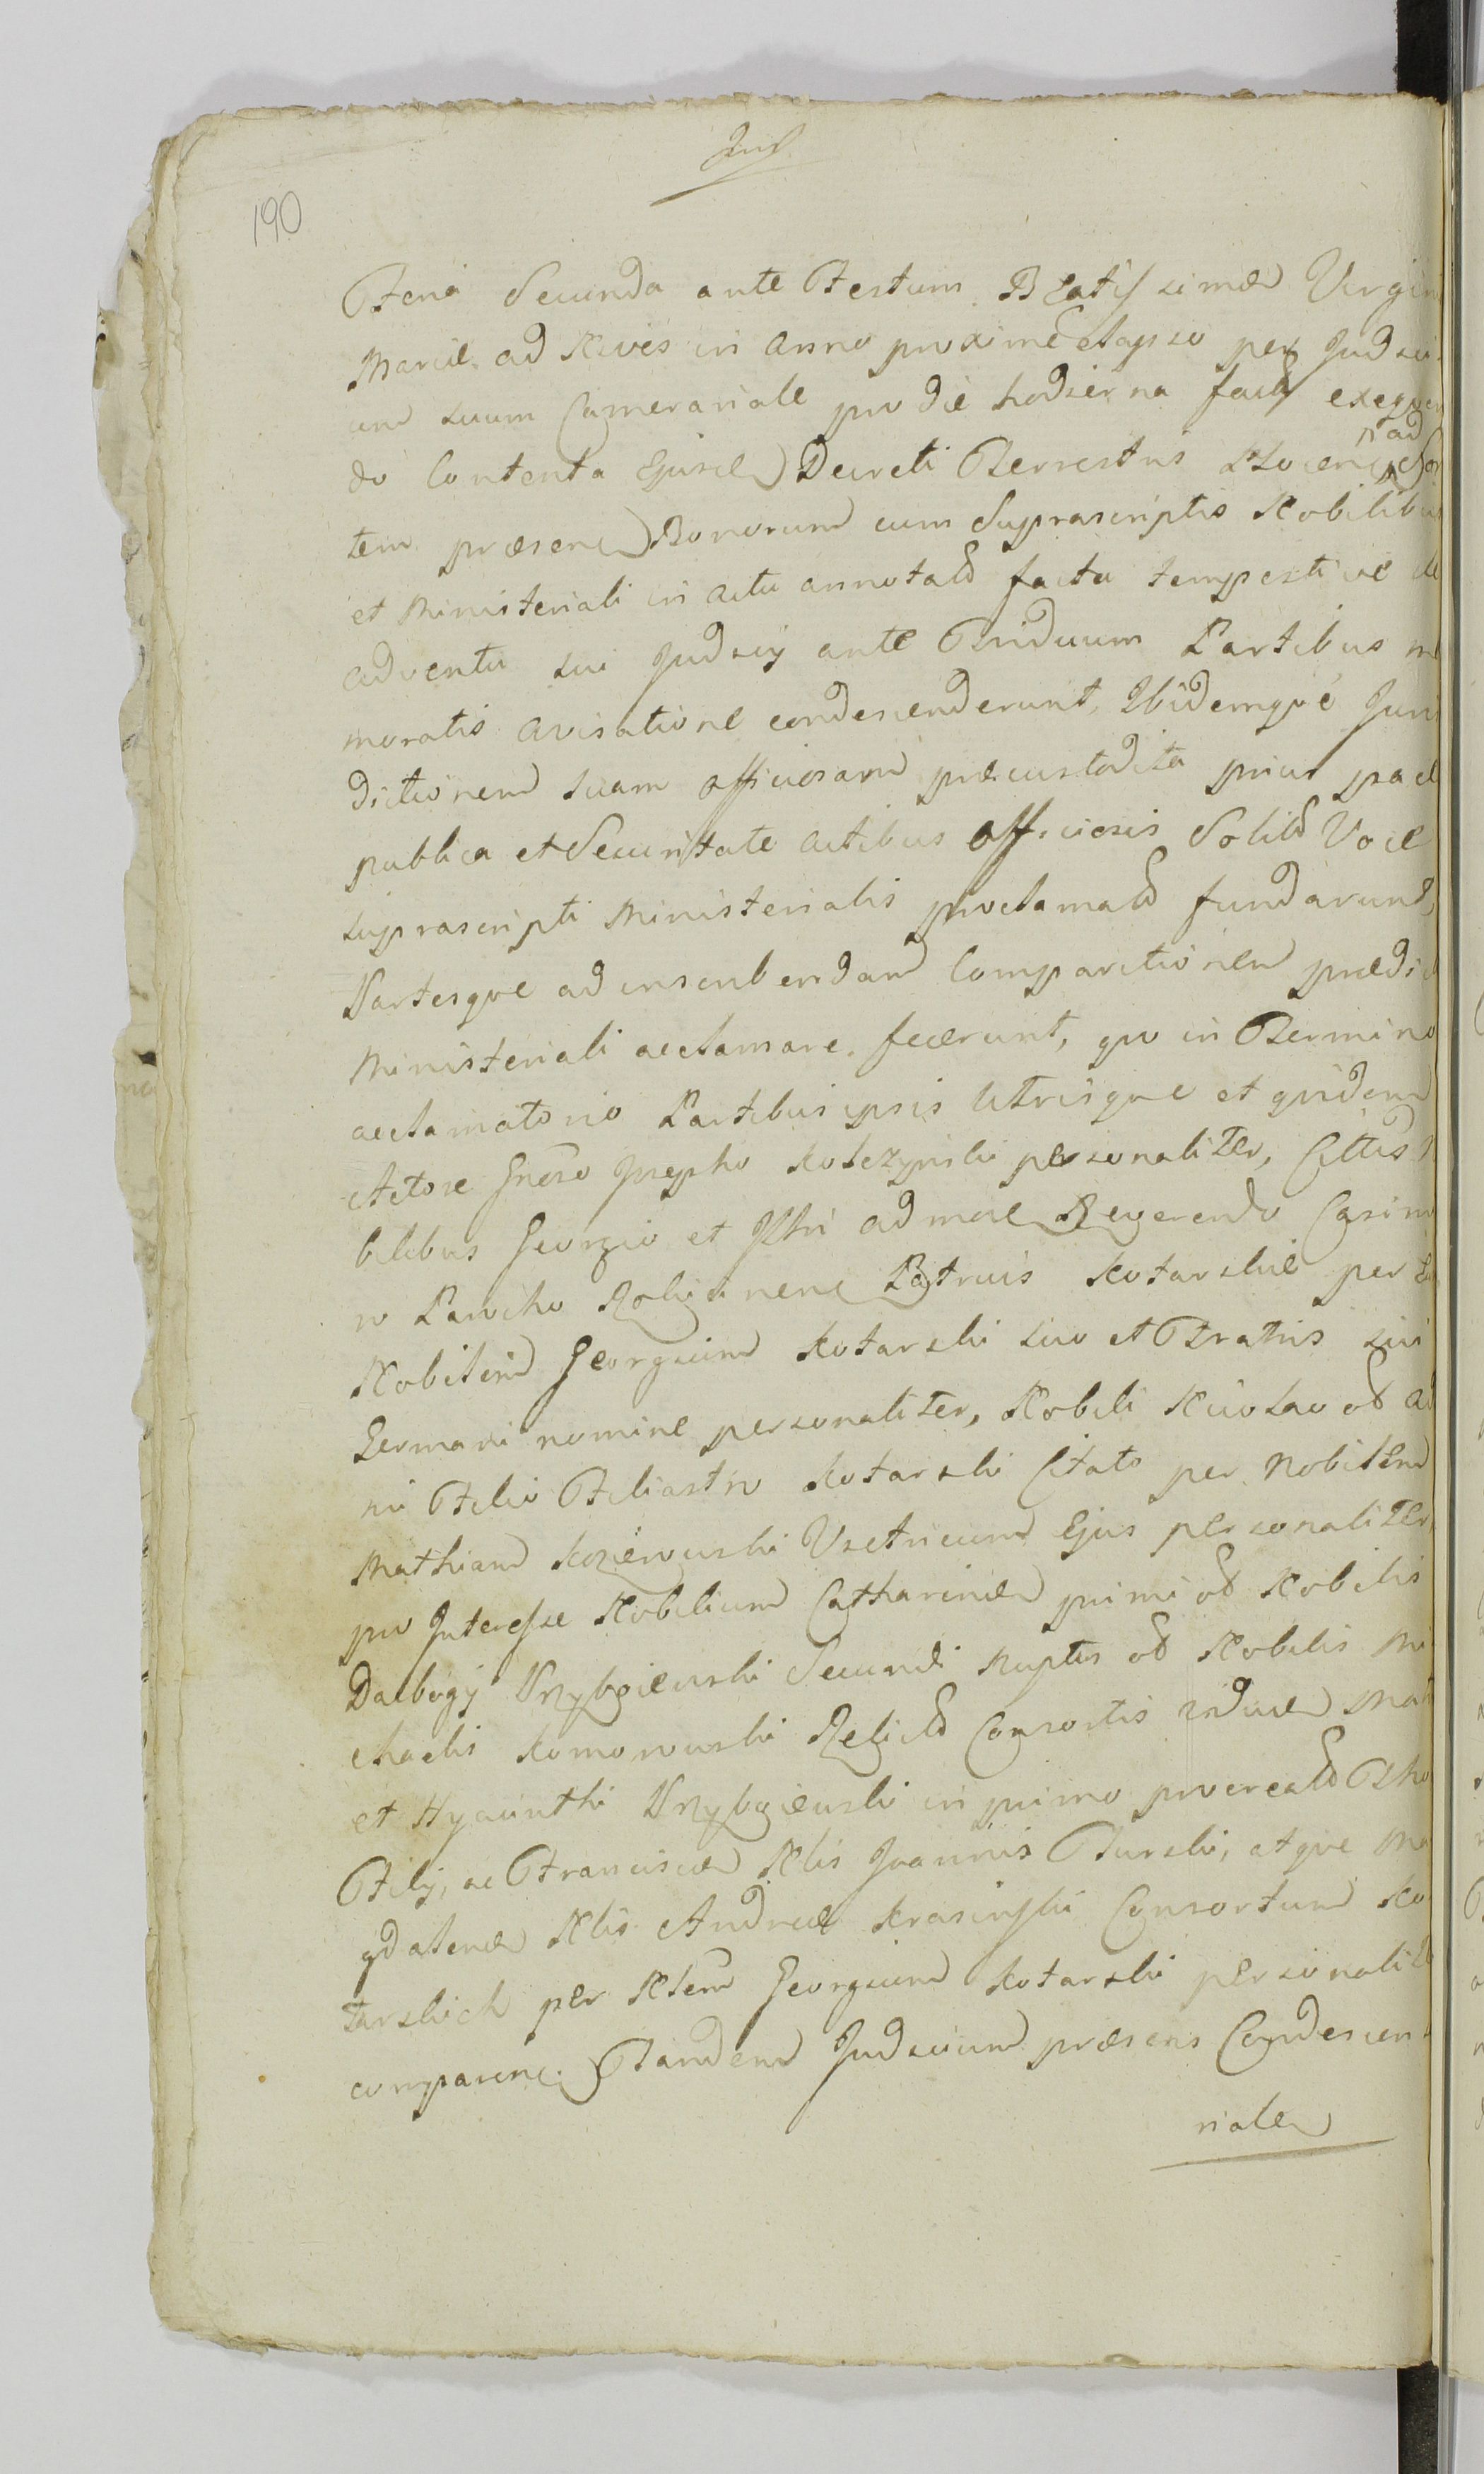 190
Feria Secunda ante Festum Beatissimæ Virgin
Mariæ ad Nives in Anno proxime elapso per Judici
um suum Camerariale pro die hodierna fact exequen
do Contenta Ejusd Decreti Terrestris ad
tem præsenc Bonorum cum Suprascriptis Nobilibus
et Ministeriali in actu annotatt facta tempestive de
adventu sui Judicij ante Triduum Partibus me
moratis avisatione condescenderunt, Ibidemque Juris
dictionem suam officiosam præcustodita prius pace
publica et Securitate actibus officiosis Solitt Voce
suprascripti Ministerialis proclamatt fundarunt,
Partesque ad inscribendam Comparitionem prædic
Ministeriali acclamare fecerunt, quo in Termino
acclamatorio Partibus ipsis Utrisque et quidem
Actore Gnoso Josepho personaliter, Cittis N
bilibus Georgio et Adm Reverendo Casimi
ro Parocho Patruis Kotarskie per
Nobilem Georgium Kotarski suo et Fratris sui
Germani nomine personaliter, Nobili Nicolao
ni Filio Filiastro Kotarski Citato per Nobilem
Mathiam Vitricum Ejus personaliter,
pro Interesse Nobilium Catharinæ primi Nobilis
Dalbogij Przybojewski Secundi Nuptis Nobilis Mi
chaelis Komorowski Relictt Consortis viduæ Mat
et Hyacinthi Przybojewski in primo procreatt Tho
Filij, ac Franciscæ Nlis Joannis Turski, atque Ma
gdalenæ Nlis Andreæ Krasinski Consortum Ko
tarskich per Nlem Georgium Kotarski personalite
comparenc. Tandem Judicium præsens Condescen
riale